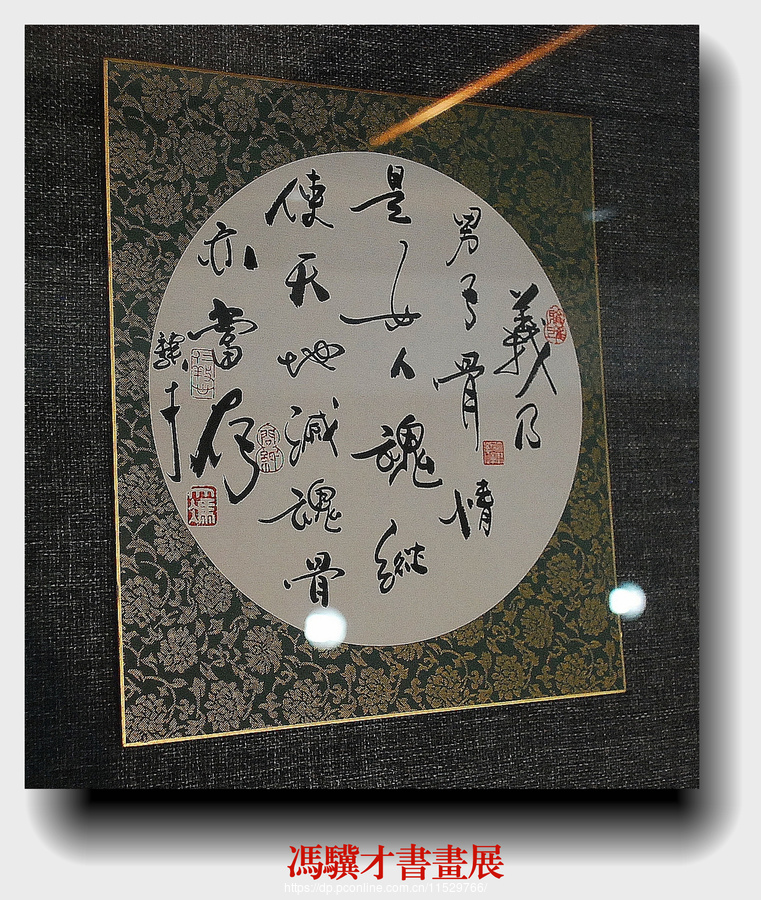 義乃
男子骨情
是女人魂縱
使天地滅魂骨
亦當存
驥才
馮驥才書畫展
https://dp.pconline.com.cn/11529766/